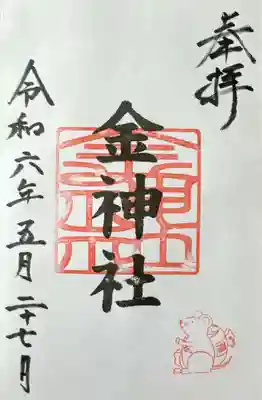 奉拝
金神社
令和六年五月二十七月